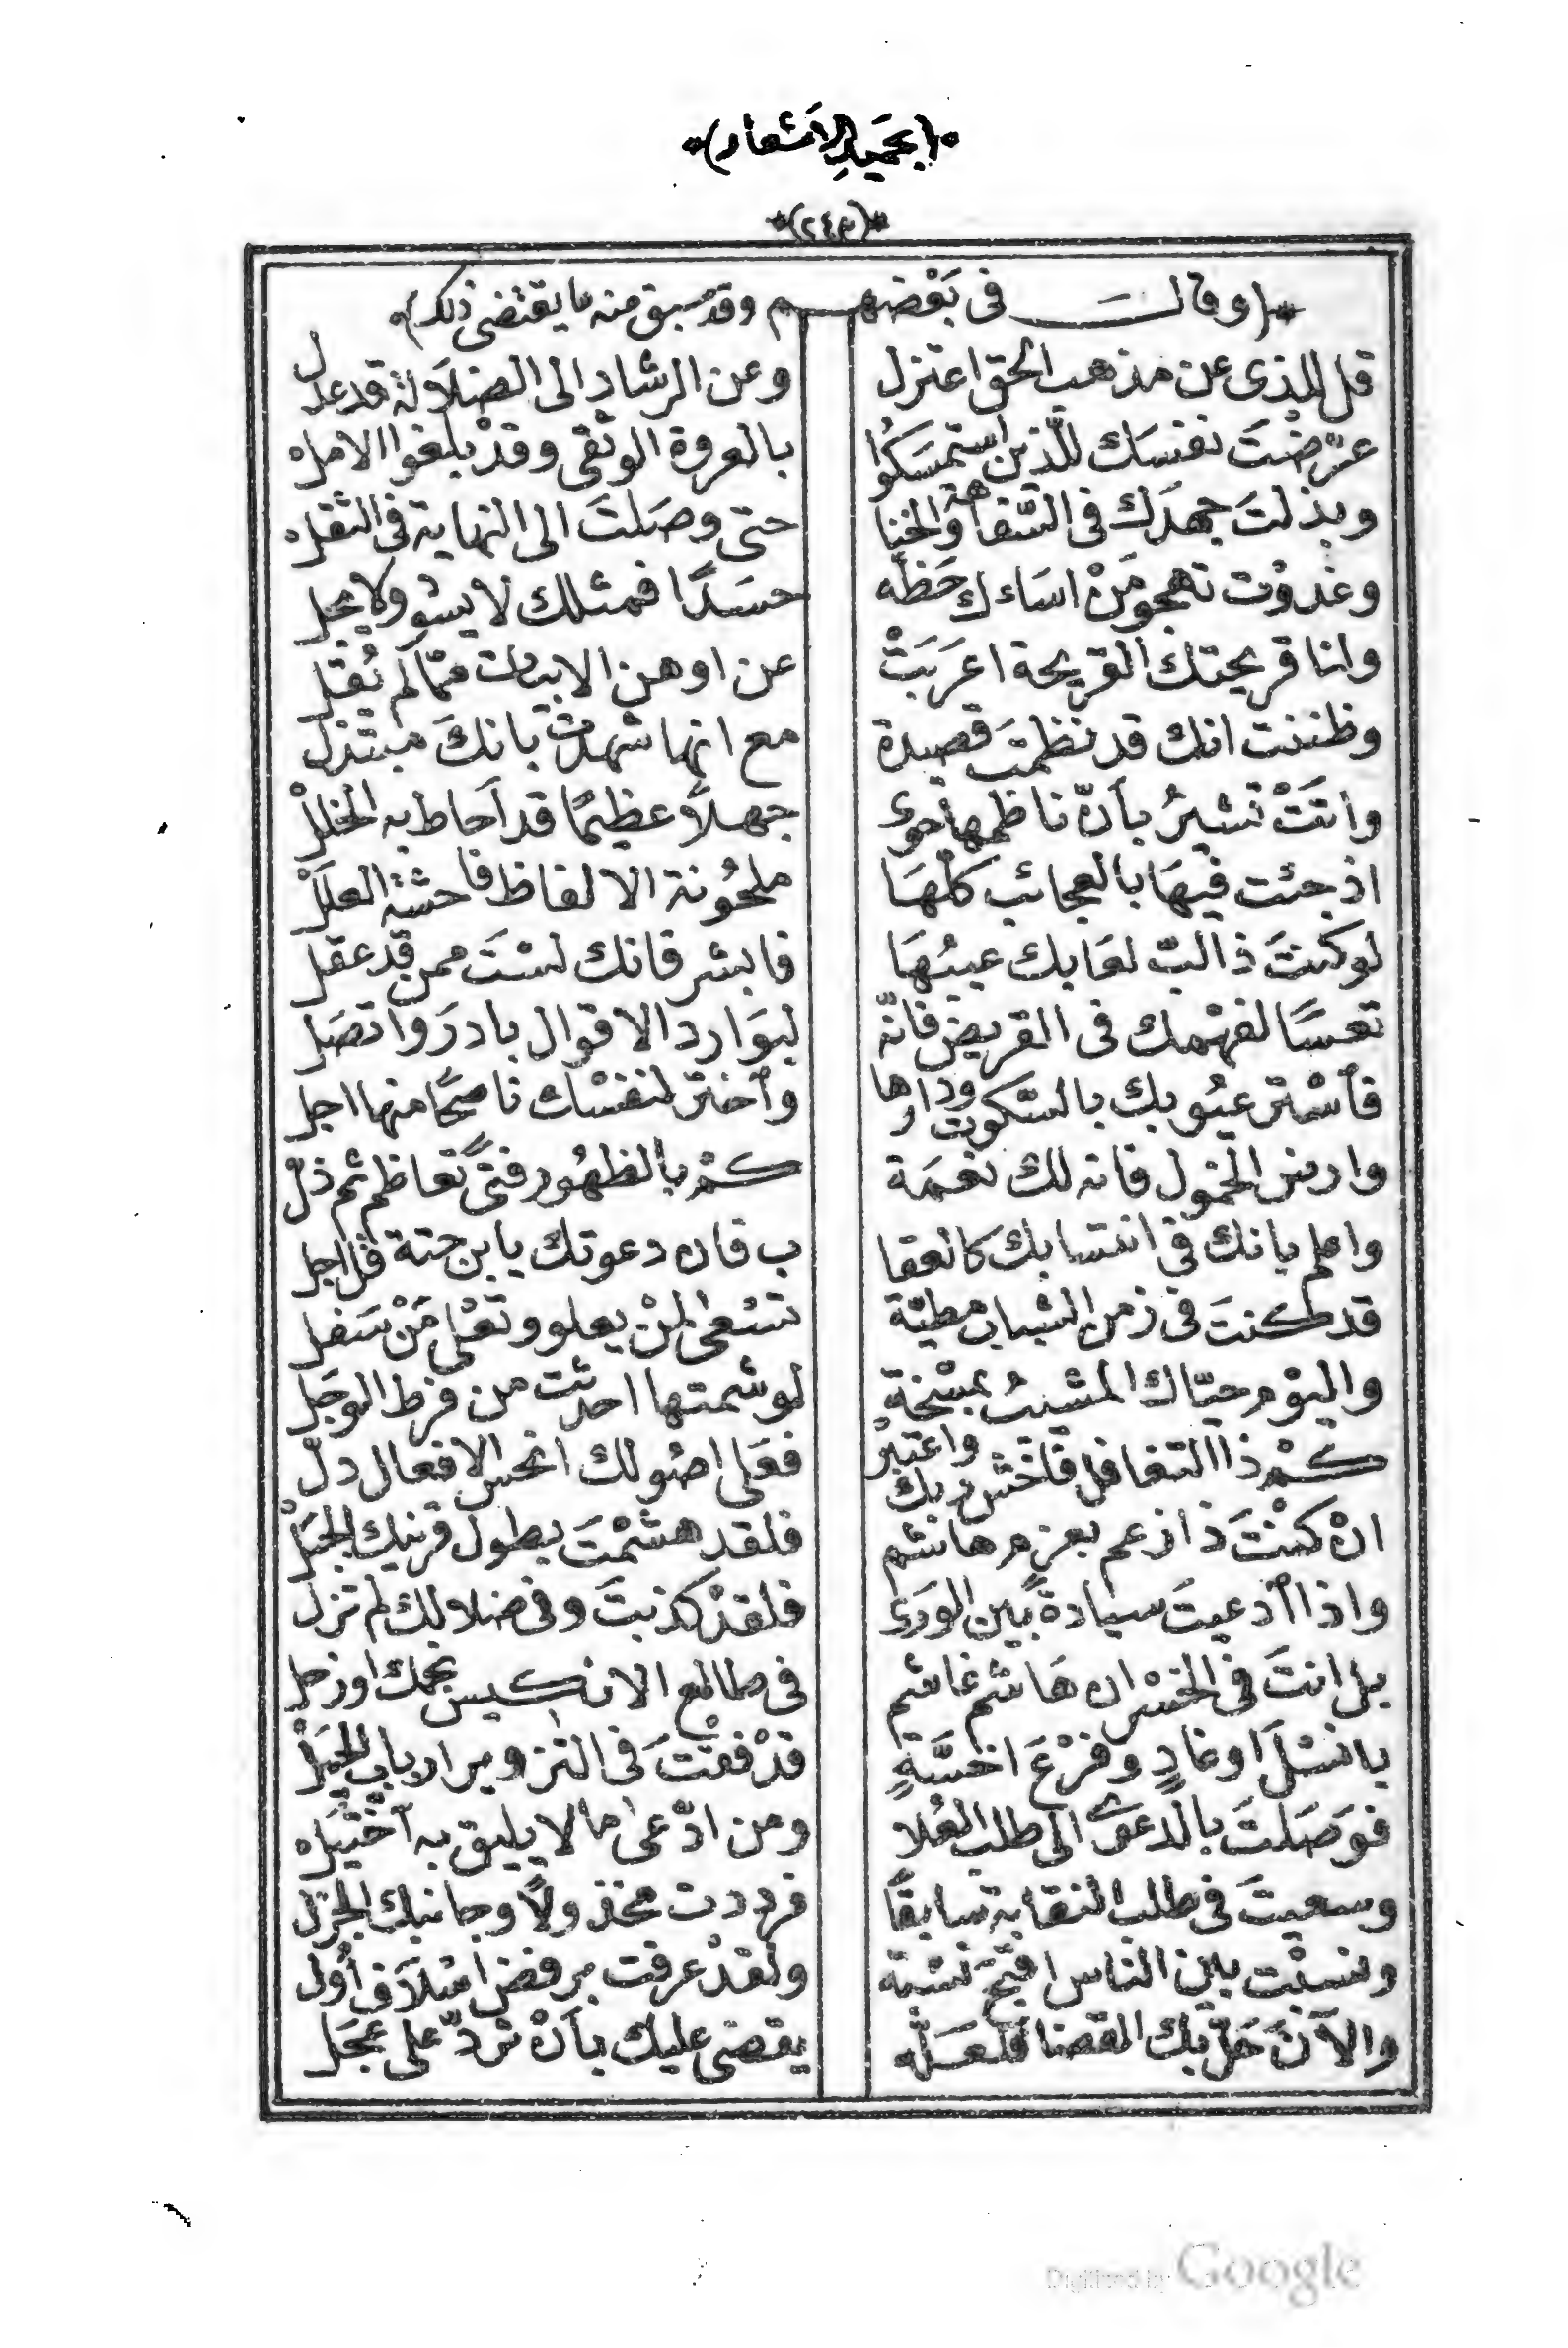 *(بجميل الاشعار)*
*(٢٤٣)*
*(وقال في بَعْضهم وقد سبق منه ما يقتضى ذلك)*
قل للذى عن مذهب الحق اعتزل وعن الرشاد الى الضلالة قد عدل
عرّضْتَ نفسَك للّذين استمسَكُوا بالعروة الوثقى وقدْ بلغوا الامل
وبذلتَ جهدَك فى السَّفاهة والخنا حتى وصَلتَ الى النهاية فى الثقل
وغدوْت تهجو مَنْ اسَاءك حَظّه حسَدًا فمثلك لا يسود ولا يجل
وانا قريحتك القريحة اعرَبَتْ عن اوهن الابيات ممّا لم يُقَل
وظننت انك قد نظمتَ قصيدة مع انها شهدت بانكَ مبتذل
واتَتْ تشيرُ بأنّ ناظمها حوى جهلاً عظيمًا قد اَحاط به الخللْ
اذ جئت فيهَا بالعجائب كلّهَا ملحُونة الالفاظ فاحشة العلَلْ
لو كنتَ ذا لبّ لعَابك عيبُهَا فابشر فانك لسْتَ ممن قد عقل
تعسًا لفهْمك فى القريض فانّه لبوَارد الاقوال بادرَ واتصَل
فاسْتر عيُوبك بالسّكوت ودارها وأختر لنفسْك ناصحًا منها اجل
وارض الخمول فانه لك نعمَة كمْ بالظهُور فتىً تعاظم ثم ذلّ
واعلم بانك فى انتسابك كالعقا ب فان دعوتك يابن جنة قل اجل
قد كنتَ فى زمن الشباب مطيّة تسْعى لمنْ يعلو وتعْلى مَنْ سَفل
واليوْم حيّاك المشيبُ بمسْخةٍ لو شمتها احدثت من فرط الوجَل
كمْ ذا التغافل فاخش ربك واعتبرْ فعَلى اصُولك انحس الافعال دلّ
ان كنْتَ ذا زعم بعزم هاشم فلقد هشمْتَ بطول قرنيك الجبَلْ
واذا أدعيتَ سيادة بين الورى فلقدْ كذبتَ وفى ضلالك لم تزل
بل انتَ فى الخسْران هَاشم غاشم فى طالع الانكيس نجمك او زحل
يا نسْلَ اوغادٍ وفرْعَ اخسَّةٍ قدْ فقْتَ فى التزوير ارباب الحيَلْ
فوَصَلتَ بالدعوى الى طلب العُلا ومن ادّعى ما لا يليق به أختبَل
وسعيتَ فى طلب النقابة سَابقًا فرددت مخذولًا وجانبك الجزل
ونسبْت بين الناس اقبحَ نسْبَة ولقدْ عرفت برفض اسْلاف أُوَل
والآنَ حَلّ بك القضا فلعَلّه يقضى عليك بأنْ تردّ على عجَل